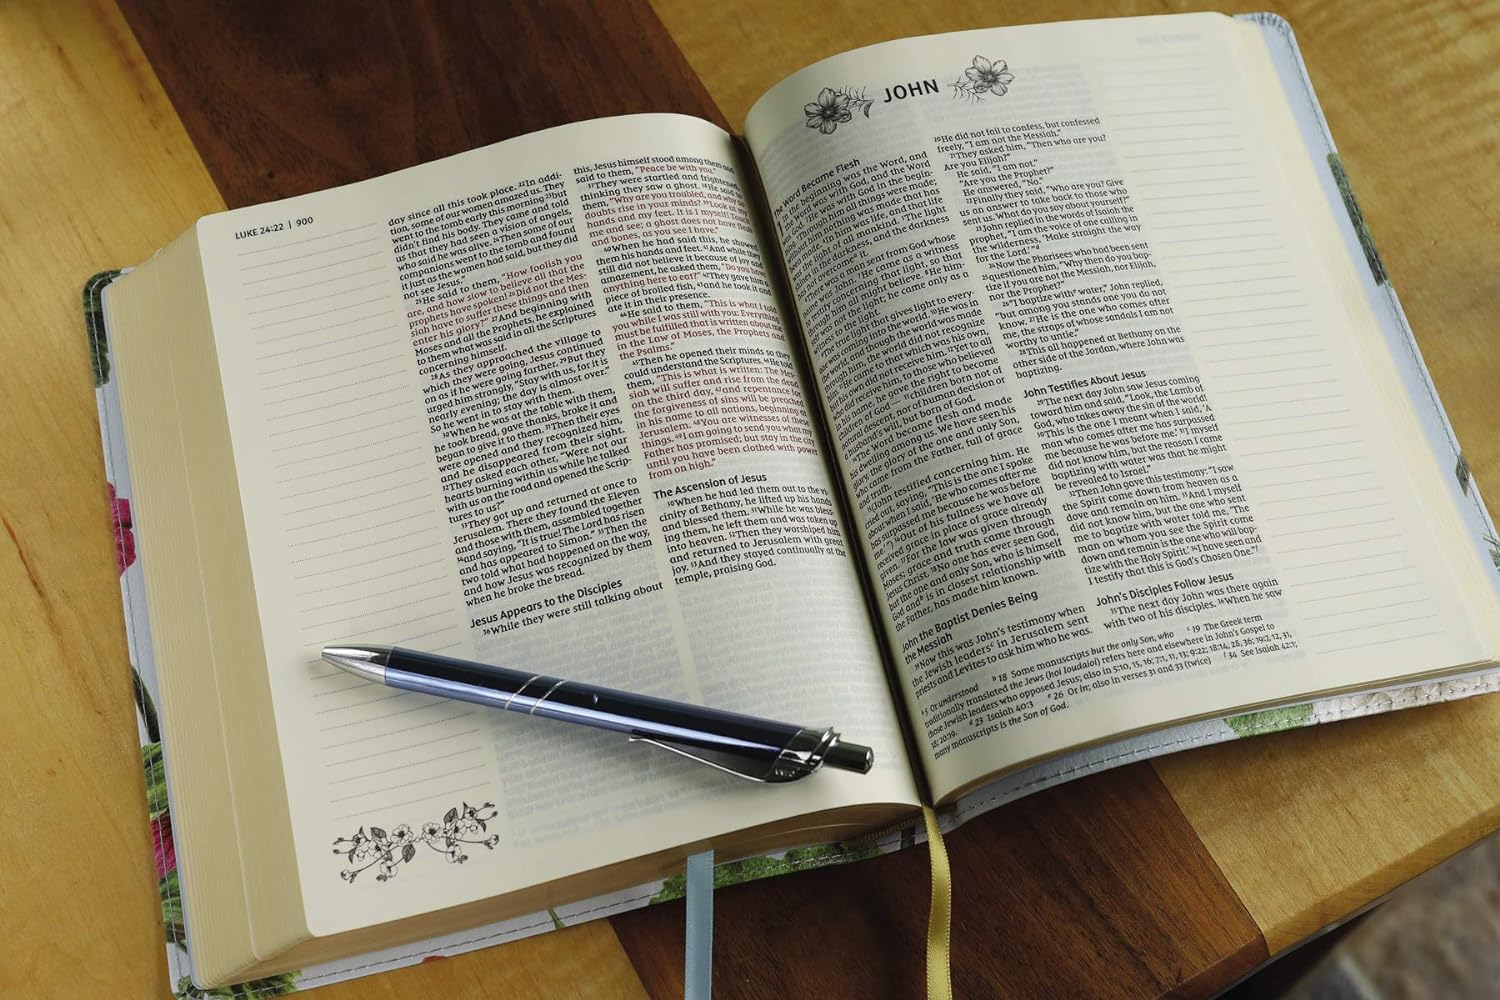 LUKE 24:22 | 900
day since all this took place. 22In addi-
tion, some of our women amazed us. They
went to the tomb early this morning 23but
didn't find his body. They came and told
us that they had seen a vision of angels,
who said he was alive. 24Then some of our
companions went to the tomb and found
it just as the women had said, but they did
not see Jesus."
25He said to them, "How foolish you
are, and how slow to believe all that the
prophets have spoken! 26Did not the Mes-
siah have to suffer these things and then
enter his glory?" 27And beginning with
Moses and all the Prophets, he explained
to them what was said in all the Scriptures
concerning himself.
28As they approached the village to
which they were going, Jesus continued
on as if he were going farther. 29But they
urged him strongly, "Stay with us, for it is
nearly evening; the day is almost over."
So he went in to stay with them.
30When he was at the table with them,
he took bread, gave thanks, broke it and
began to give it to them. 31Then their eyes
were opened and they recognized him,
and he disappeared from their sight.
32They asked each other, "Were not our
hearts burning within us while he talked
with us on the road and opened the Scrip-
tures to us?"
33They got up and returned at once to
Jerusalem. There they found the Eleven
and those with them, assembled together
34and saying, "It is true! The Lord has risen
and has appeared to Simon." 35Then the
two told what had happened on the way,
and how Jesus was recognized by them
when he broke the bread.
Jesus Appears to the Disciples
36While they were still talking about
this, Jesus himself stood among them and
said to them, "Peace be with you."
37They were startled and frightened,
thinking they saw a ghost. 38He said to
them, "Why are you troubled, and why do
doubts rise in your minds? 39Look at my
hands and my feet. It is I myself! Touch
me and see; a ghost does not have flesh
and bones, as you see I have."
40When he had said this, he showed
them his hands and feet. 41And while they
still did not believe it because of joy and
amazement, he asked them, "Do you have
anything here to eat?" 42They gave him a
piece of broiled fish, 43and he took it and
ate it in their presence.
44He said to them, "This is what I told
you while I was still with you: Everything
must be fulfilled that is written about me
in the Law of Moses, the Prophets and
the Psalms."
45Then he opened their minds so they
could understand the Scriptures. 46He told
them, "This is what is written: The Mes-
siah will suffer and rise from the dead
on the third day, 47and repentance for
the forgiveness of sins will be preached
in his name to all nations, beginning at
Jerusalem. 48You are witnesses of these
things. 49I am going to send you what my
Father has promised; but stay in the city
until you have been clothed with power
from on high."
The Ascension of Jesus
50When he had led them out to the vi-
cinity of Bethany, he lifted up his hands
and blessed them. 51While he was bless-
ing them, he left them and was taken up
into heaven. 52Then they worshiped him
and returned to Jerusalem with great
joy. 53And they stayed continually at the
temple, praising God.
JOHN
The Word Became Flesh
1 In the beginning was the Word, and
the Word was with God, and the Word
was God. 2He was with God in the begin-
3Through him all things were made;
without him nothing was made that has
been made. 4In him was life, and that life
was the light of all mankind. 5The light
shines in the darkness, and the darkness
has not overcome it.
6There was a man sent from God whose
name was John. 7He came as a witness
to testify concerning that light, so that
through him all might believe. 8He him-
self was not the light; he came only as a
witness to the light.
9The true light that gives light to every-
one was coming into the world. 10He was in
the world, and though the world was made
through him, the world did not recognize
him. 11He came to that which was his own,
but his own did not receive him. 12Yet to all
who did receive him, to those who believed
in his name, he gave the right to become
children of God— 13children born not of
natural descent, nor of human decision or
a husband's will, but born of God.
14The Word became flesh and made
his dwelling among us. We have seen his
glory, the glory of the one and only Son,
who came from the Father, full of grace
and truth.
15(John testified concerning him. He
cried out, saying, "This is the one I spoke
about when I said, 'He who comes after me
has surpassed me because he was before
me.'") 16Out of his fullness we have all
received grace in place of grace already
given. 17For the law was given through
Moses; grace and truth came through
Jesus Christ. 18No one has ever seen God,
but the one and only Son, who is himself
God and b is in closest relationship with
the Father, has made him known.
John the Baptist Denies Being
the Messiah
19Now this was John's testimony when
the Jewish leaders c in Jerusalem sent
priests and Levites to ask him who he was.
20He did not fail to confess, but confessed
freely, "I am not the Messiah."
21They asked him, "Then who are you?
Are you Elijah?"
He said, "I am not."
"Are you the Prophet?"
He answered, "No."
22Finally they said, "Who are you? Give
us an answer to take back to those who
sent us. What do you say about yourself?"
23John replied in the words of Isaiah the
prophet, "I am the voice of one calling in
the wilderness, 'Make straight the way
for the Lord.'" d
24Now the Pharisees who had been sent
25questioned him, "Why then do you bap-
tize if you are not the Messiah, nor Elijah,
nor the Prophet?"
26"I baptize with e water," John replied,
"but among you stands one you do not
know. 27He is the one who comes after
me, the straps of whose sandals I am not
worthy to untie."
28This all happened at Bethany on the
other side of the Jordan, where John was
baptizing.
John Testifies About Jesus
29The next day John saw Jesus coming
toward him and said, "Look, the Lamb of
God, who takes away the sin of the world!
30This is the one I meant when I said, 'A
man who comes after me has surpassed
me because he was before me.' 31I myself
did not know him, but the reason I came
baptizing with water was that he might
be revealed to Israel."
32Then John gave this testimony: "I saw
the Spirit come down from heaven as a
dove and remain on him. 33And I myself
did not know him, but the one who sent
me to baptize with water told me, 'The
man on whom you see the Spirit come
down and remain is the one who will bap-
tize with the Holy Spirit.' 34I have seen and
I testify that this is God's Chosen One." f
John's Disciples Follow Jesus
35The next day John was there again
with two of his disciples. 36When he saw
a 5 Or understood b 18 Some manuscripts but the only Son, who c 19 The Greek term
traditionally translated the Jews (hoi Ioudaioi) refers here and elsewhere in John's Gospel to
those Jewish leaders who opposed Jesus; also in 5:10, 15, 16; 7:1, 11, 13; 9:22; 18:14, 28, 36; 19:7, 12, 31,
38; 20:19. d 23 Isaiah 40:3 e 26 Or in; also in verses 31 and 33 (twice) f 34 See Isaiah 42:1;
many manuscripts is the Son of God.